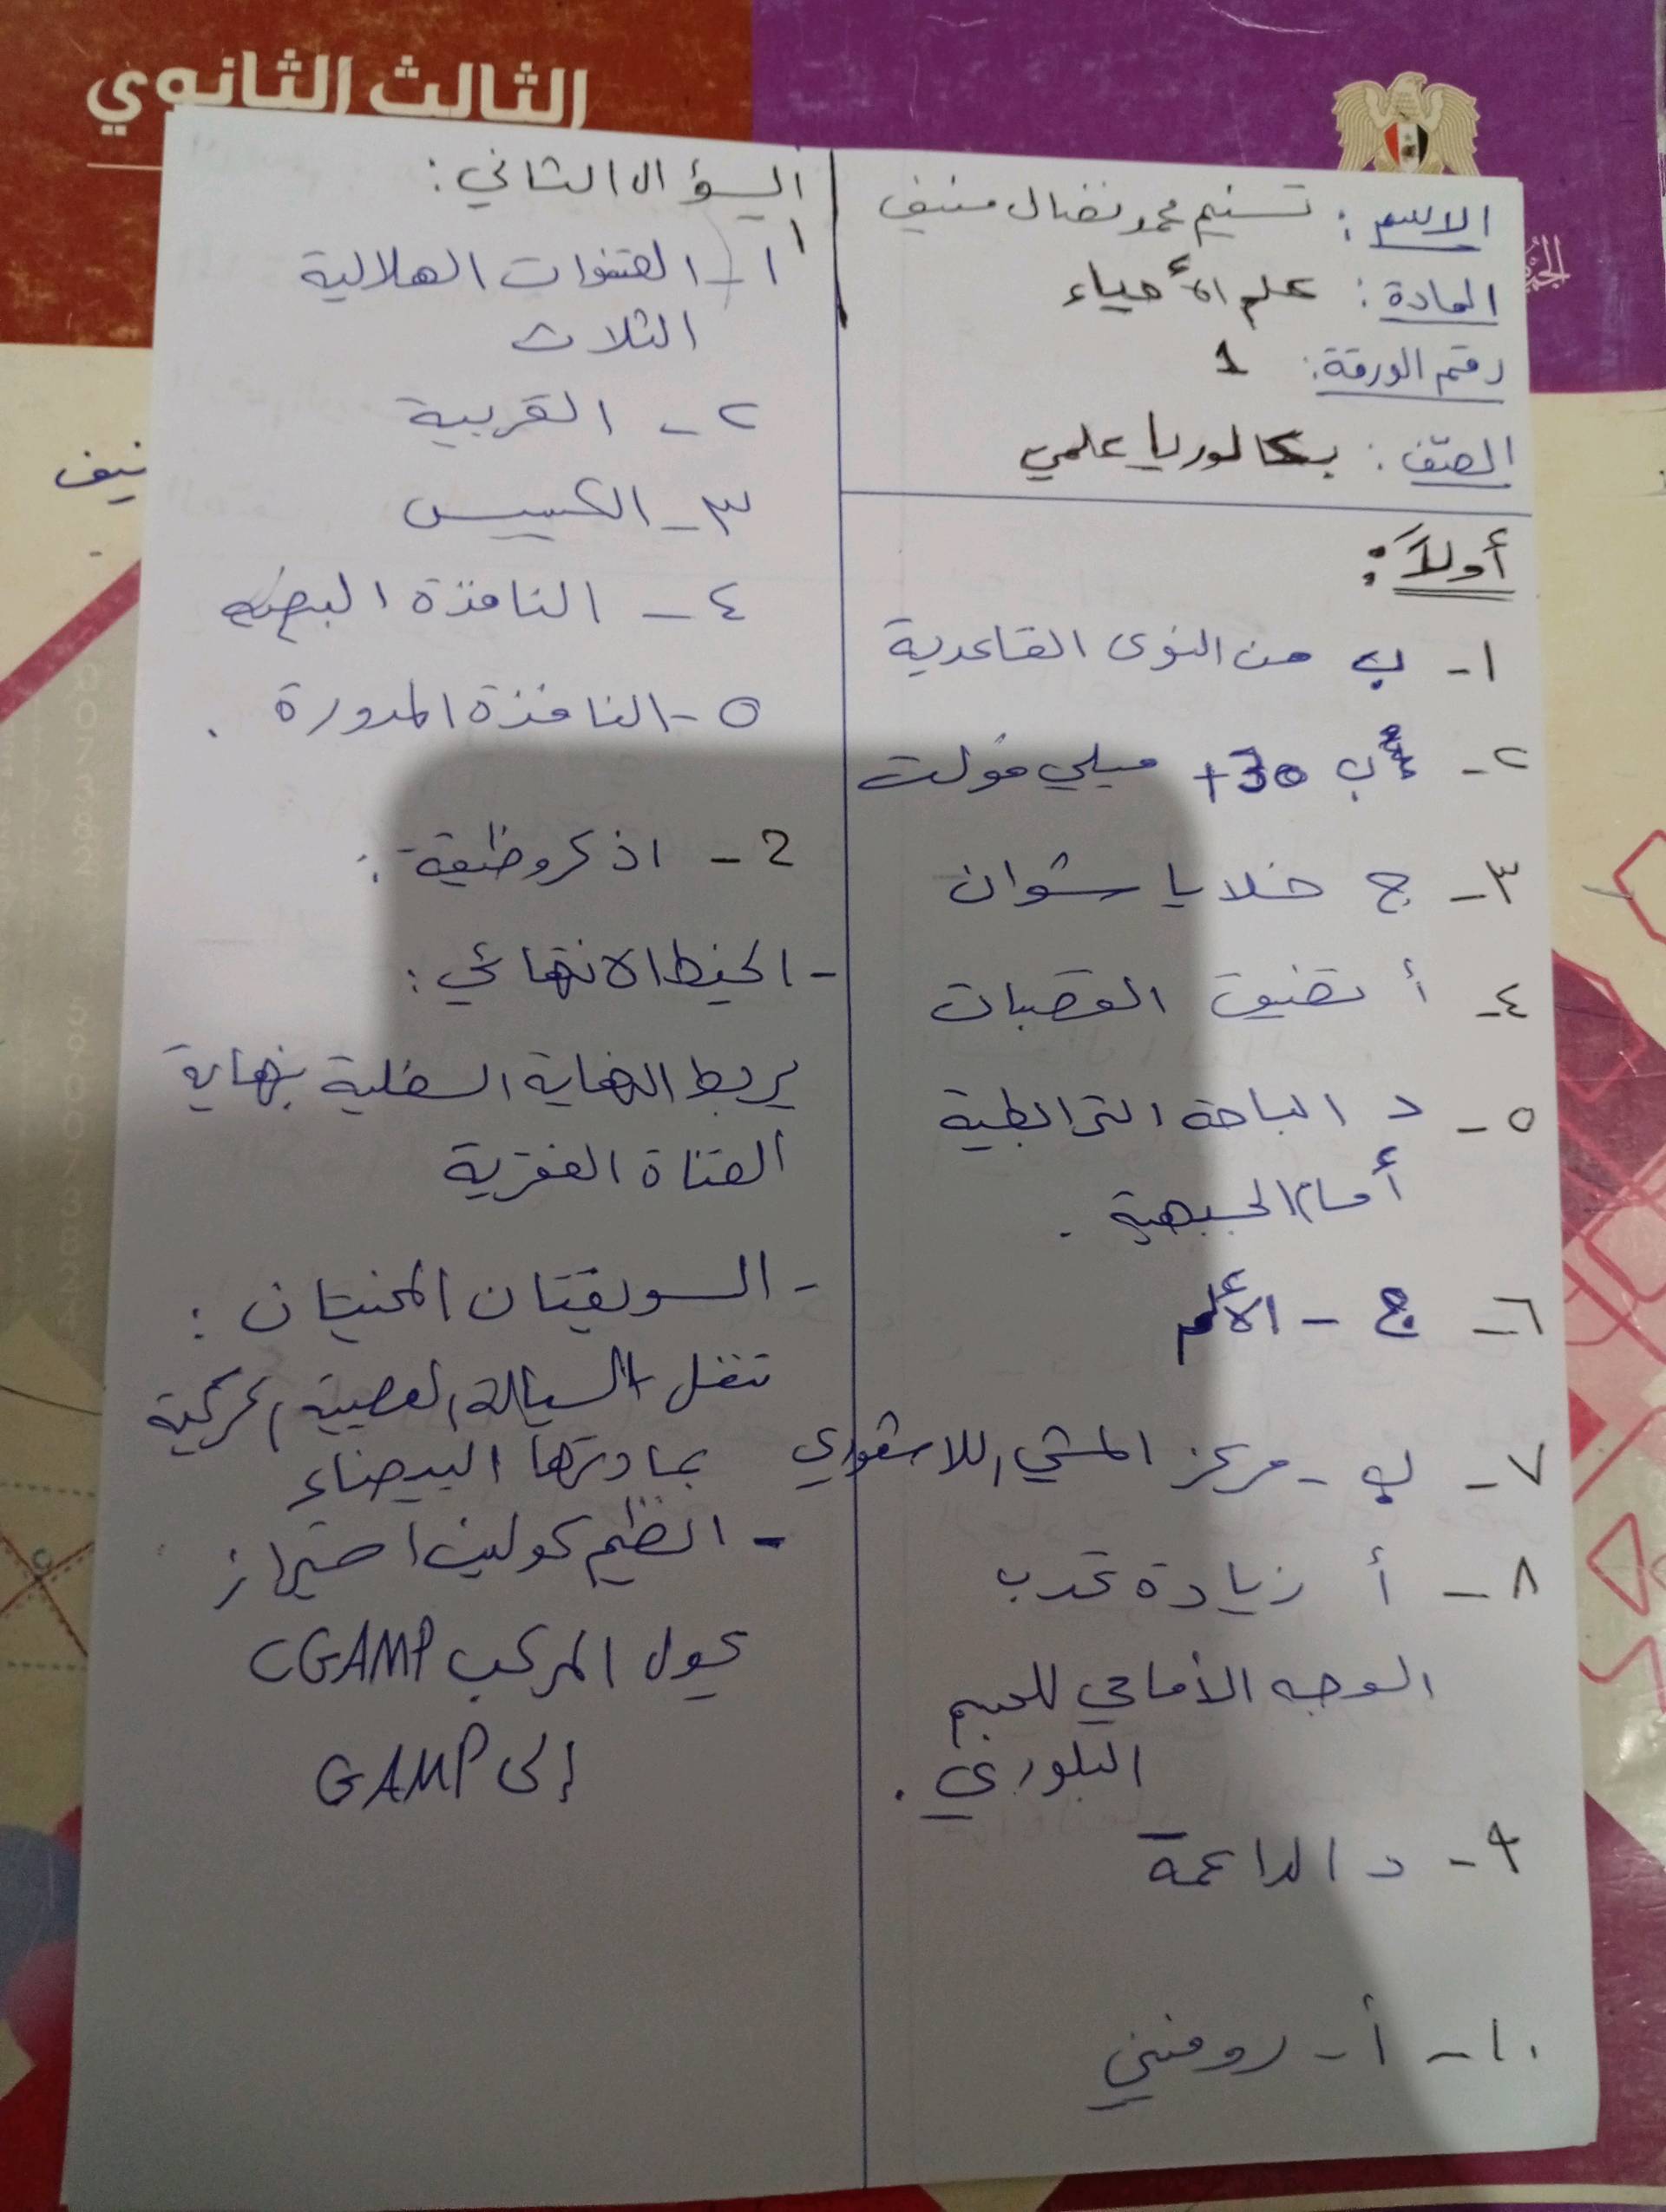 الثالث الثانوي
الاسم: تسنيم محمد نضال منيف
المادة: علم الأحياء
رقم الورقة: 1
الصف: بكالوريا علمي
أولاً:
١- ب من النوى القاعدية
٢- ب 30+ ميلي فولت
٣- ج خلايا شوان
٤- أ تضيق القصبات
٥- د الباحة الترابطية
أمام الجبهية.
٦- ج - الألم
٧- ب - مركز المشي اللاشعوري
٨- أ زيادة تحدب
الوجه الأمامي للجسم
البلوري.
٩- د الداعمة
١٠- أ- رومنين
السؤال الثاني:
١
١- القنوات الهلالية
الثلاث
٢- القريبة
٣- الكييس
٤- النافذة البيضية
٥- النافذة المدورة.
2- اذكر وظيفة:
- الخيط الانتهائي:
يربط النهاية السفلية بنهاية
القناة الفقرية
- السويقتان المخيتان:
تنقل السيالة العصبية الحركية
بمادتها البيضاء
- انظيم كولين استيراز
يحول المركب CGAMP
إلى GAMP
نيف